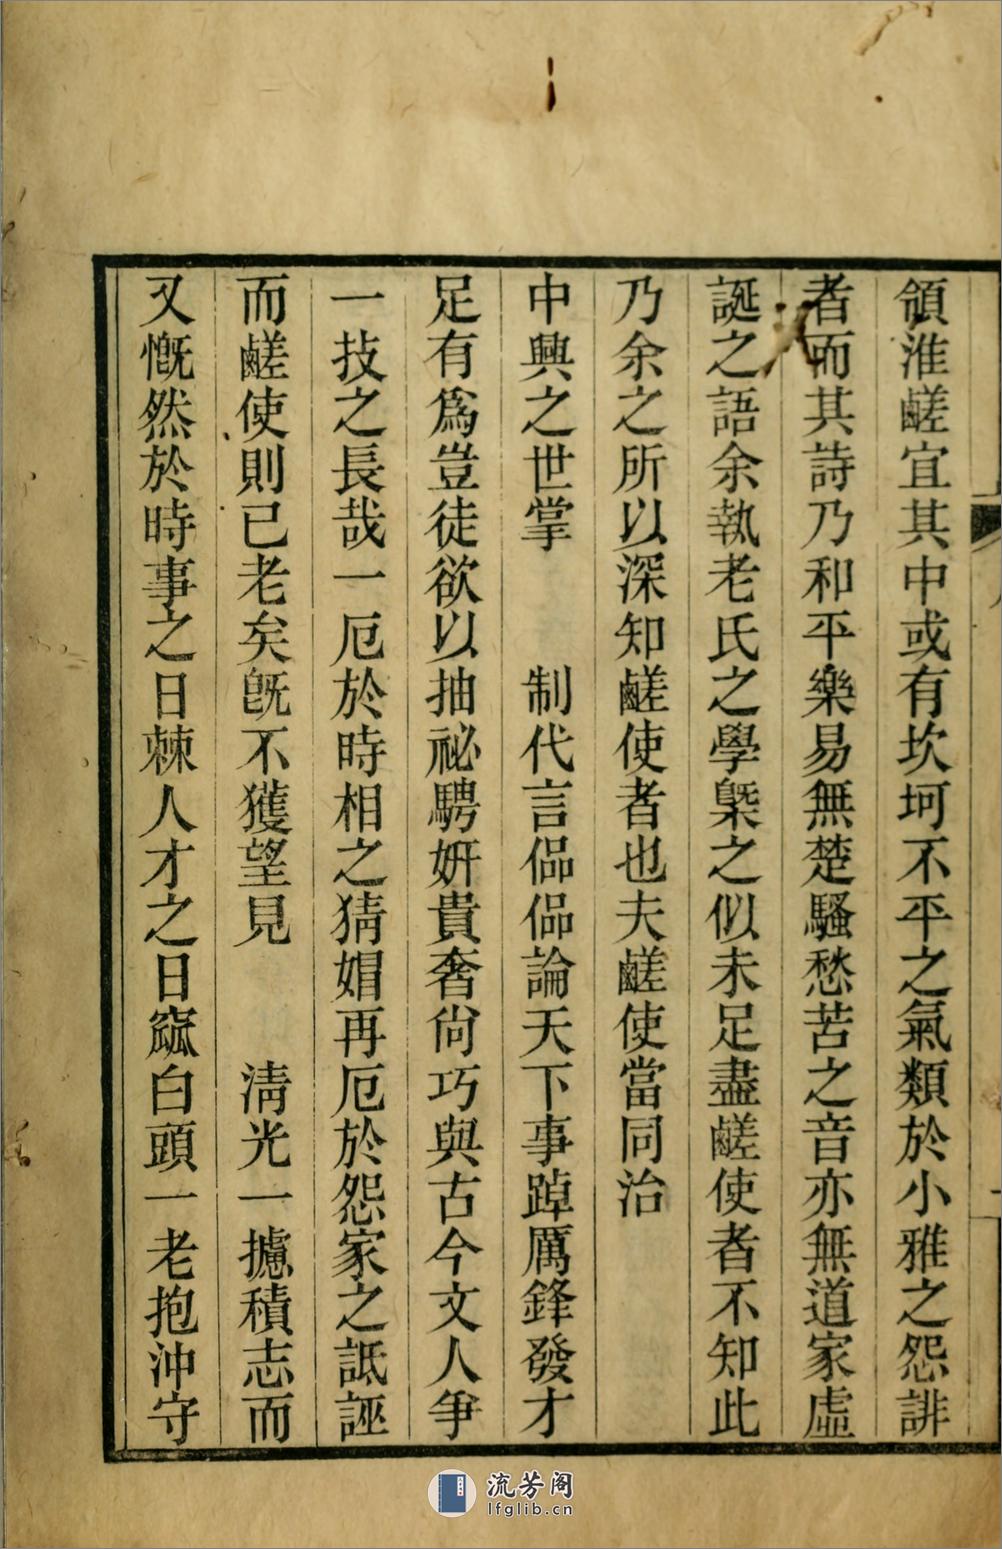 領淮鹺宜其中或有坎坷不平之氣類於小雅之怨誹
者而其詩乃和平樂易無楚騷愁苦之音亦無道家虛
誕之語余執老氏之學槩之似未足盡鹺使者不知此
乃余之所以深知鹺使者也夫鹺使當同治
中興之世掌　　制代言偘偘論天下事踔厲鋒發才
足有爲豈徒欲以抽祕騁妍貴奢尙巧與古今文人爭
一技之長哉一厄於時相之猜媢再厄於怨家之詆誣
而鹺使則已老矣旣不獲望見　　淸光一攄積志而
又慨然於時事之日棘人才之日窳白頭一老抱沖守
流芳阁
lfglib.cn